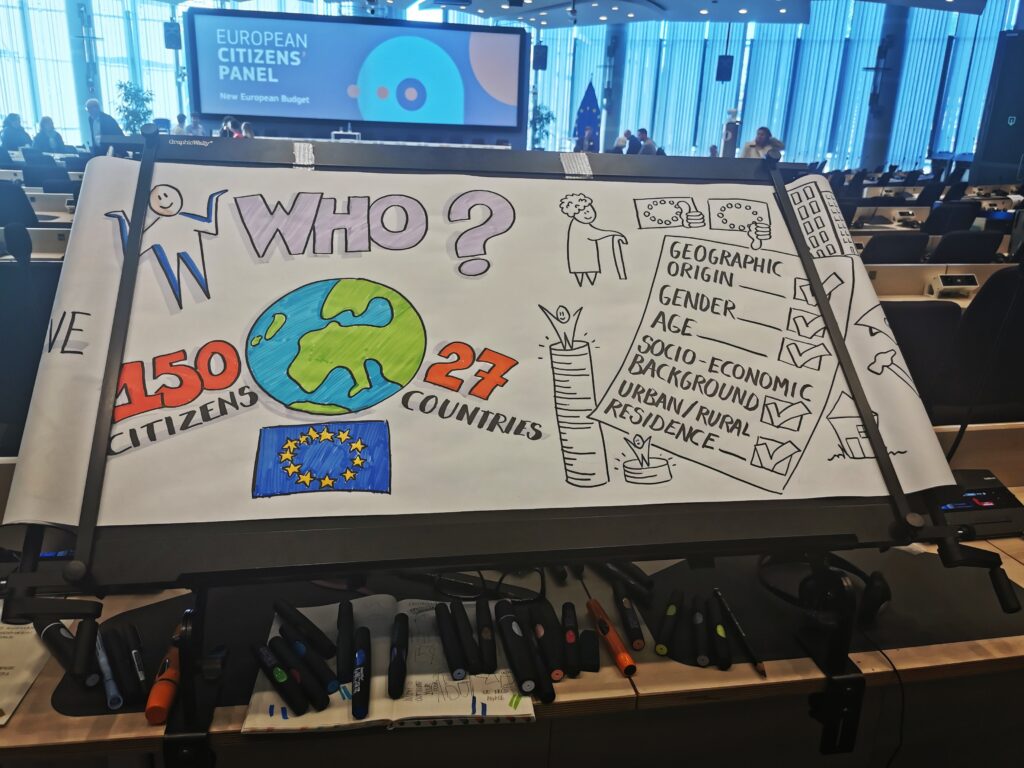 EUROPEAN
CITIZENS'
PANEL
New European Budget
GraphicWally
WHO?
VE
150
CITIZENS
27
COUNTRIES
GEOGRAPHIC
ORIGIN
GENDER
AGE
SOCIO-ECONOMIC
BACKGROUND
URBAN/RURAL
RESIDENCE